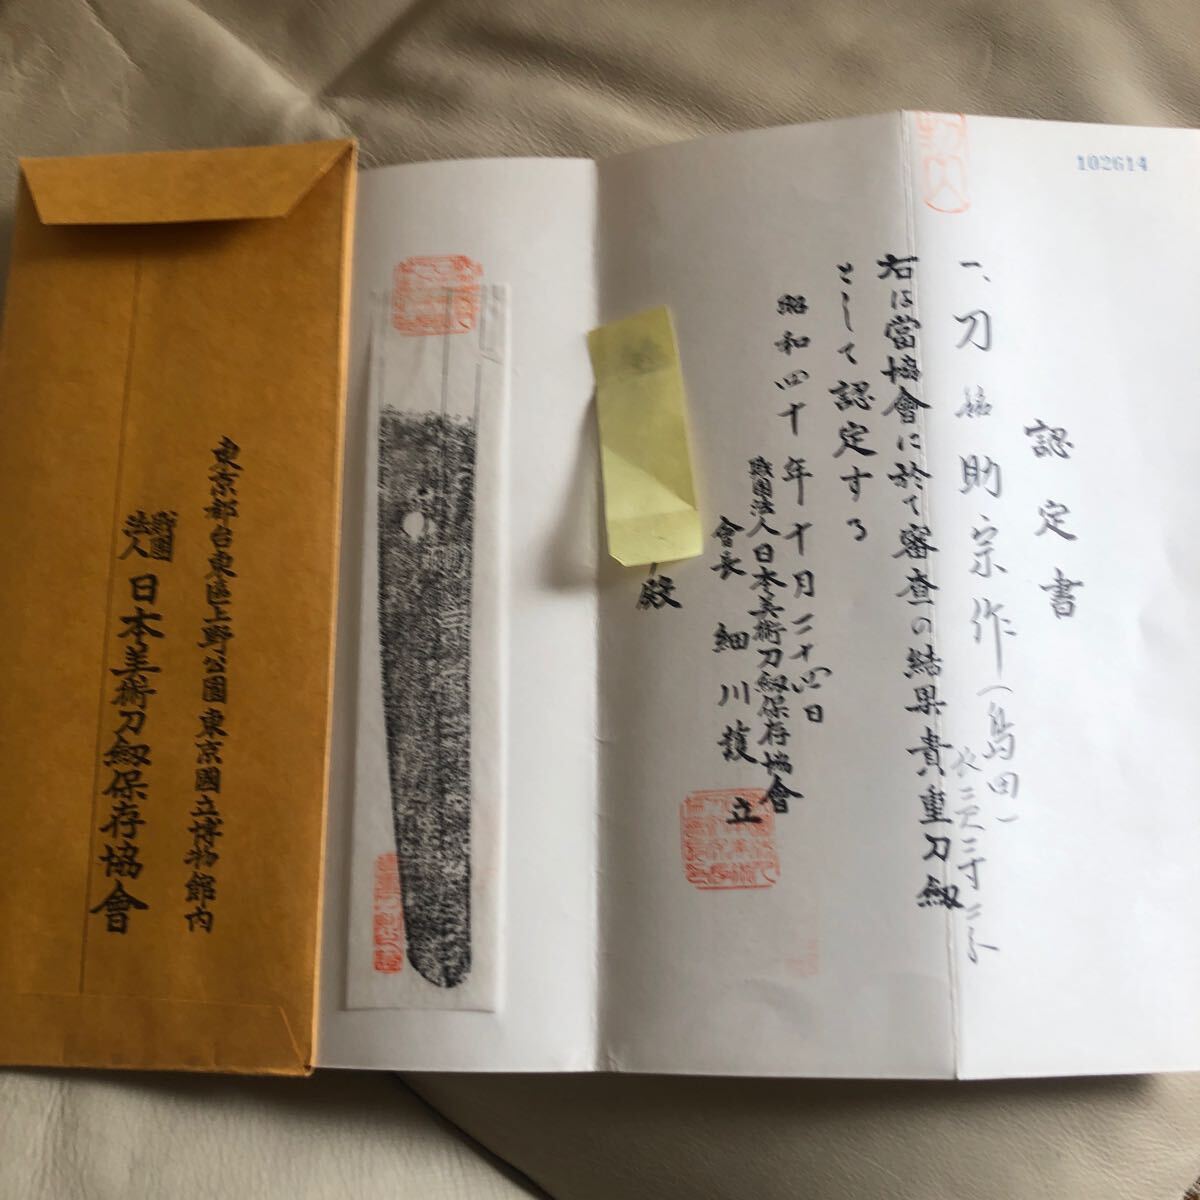 102614
認定書
一、刀 銘 助宗作(島田)
長二尺三寸二分
右は當協會に於て審査の結果貴重刀劔
として認定する
昭和四十年十月二十四日
財團法人日本美術刀劔保存協會
會長 細川護立
殿
東京都台東區上野公園東京國立博物館内
財團法人 日本美術刀劔保存協會